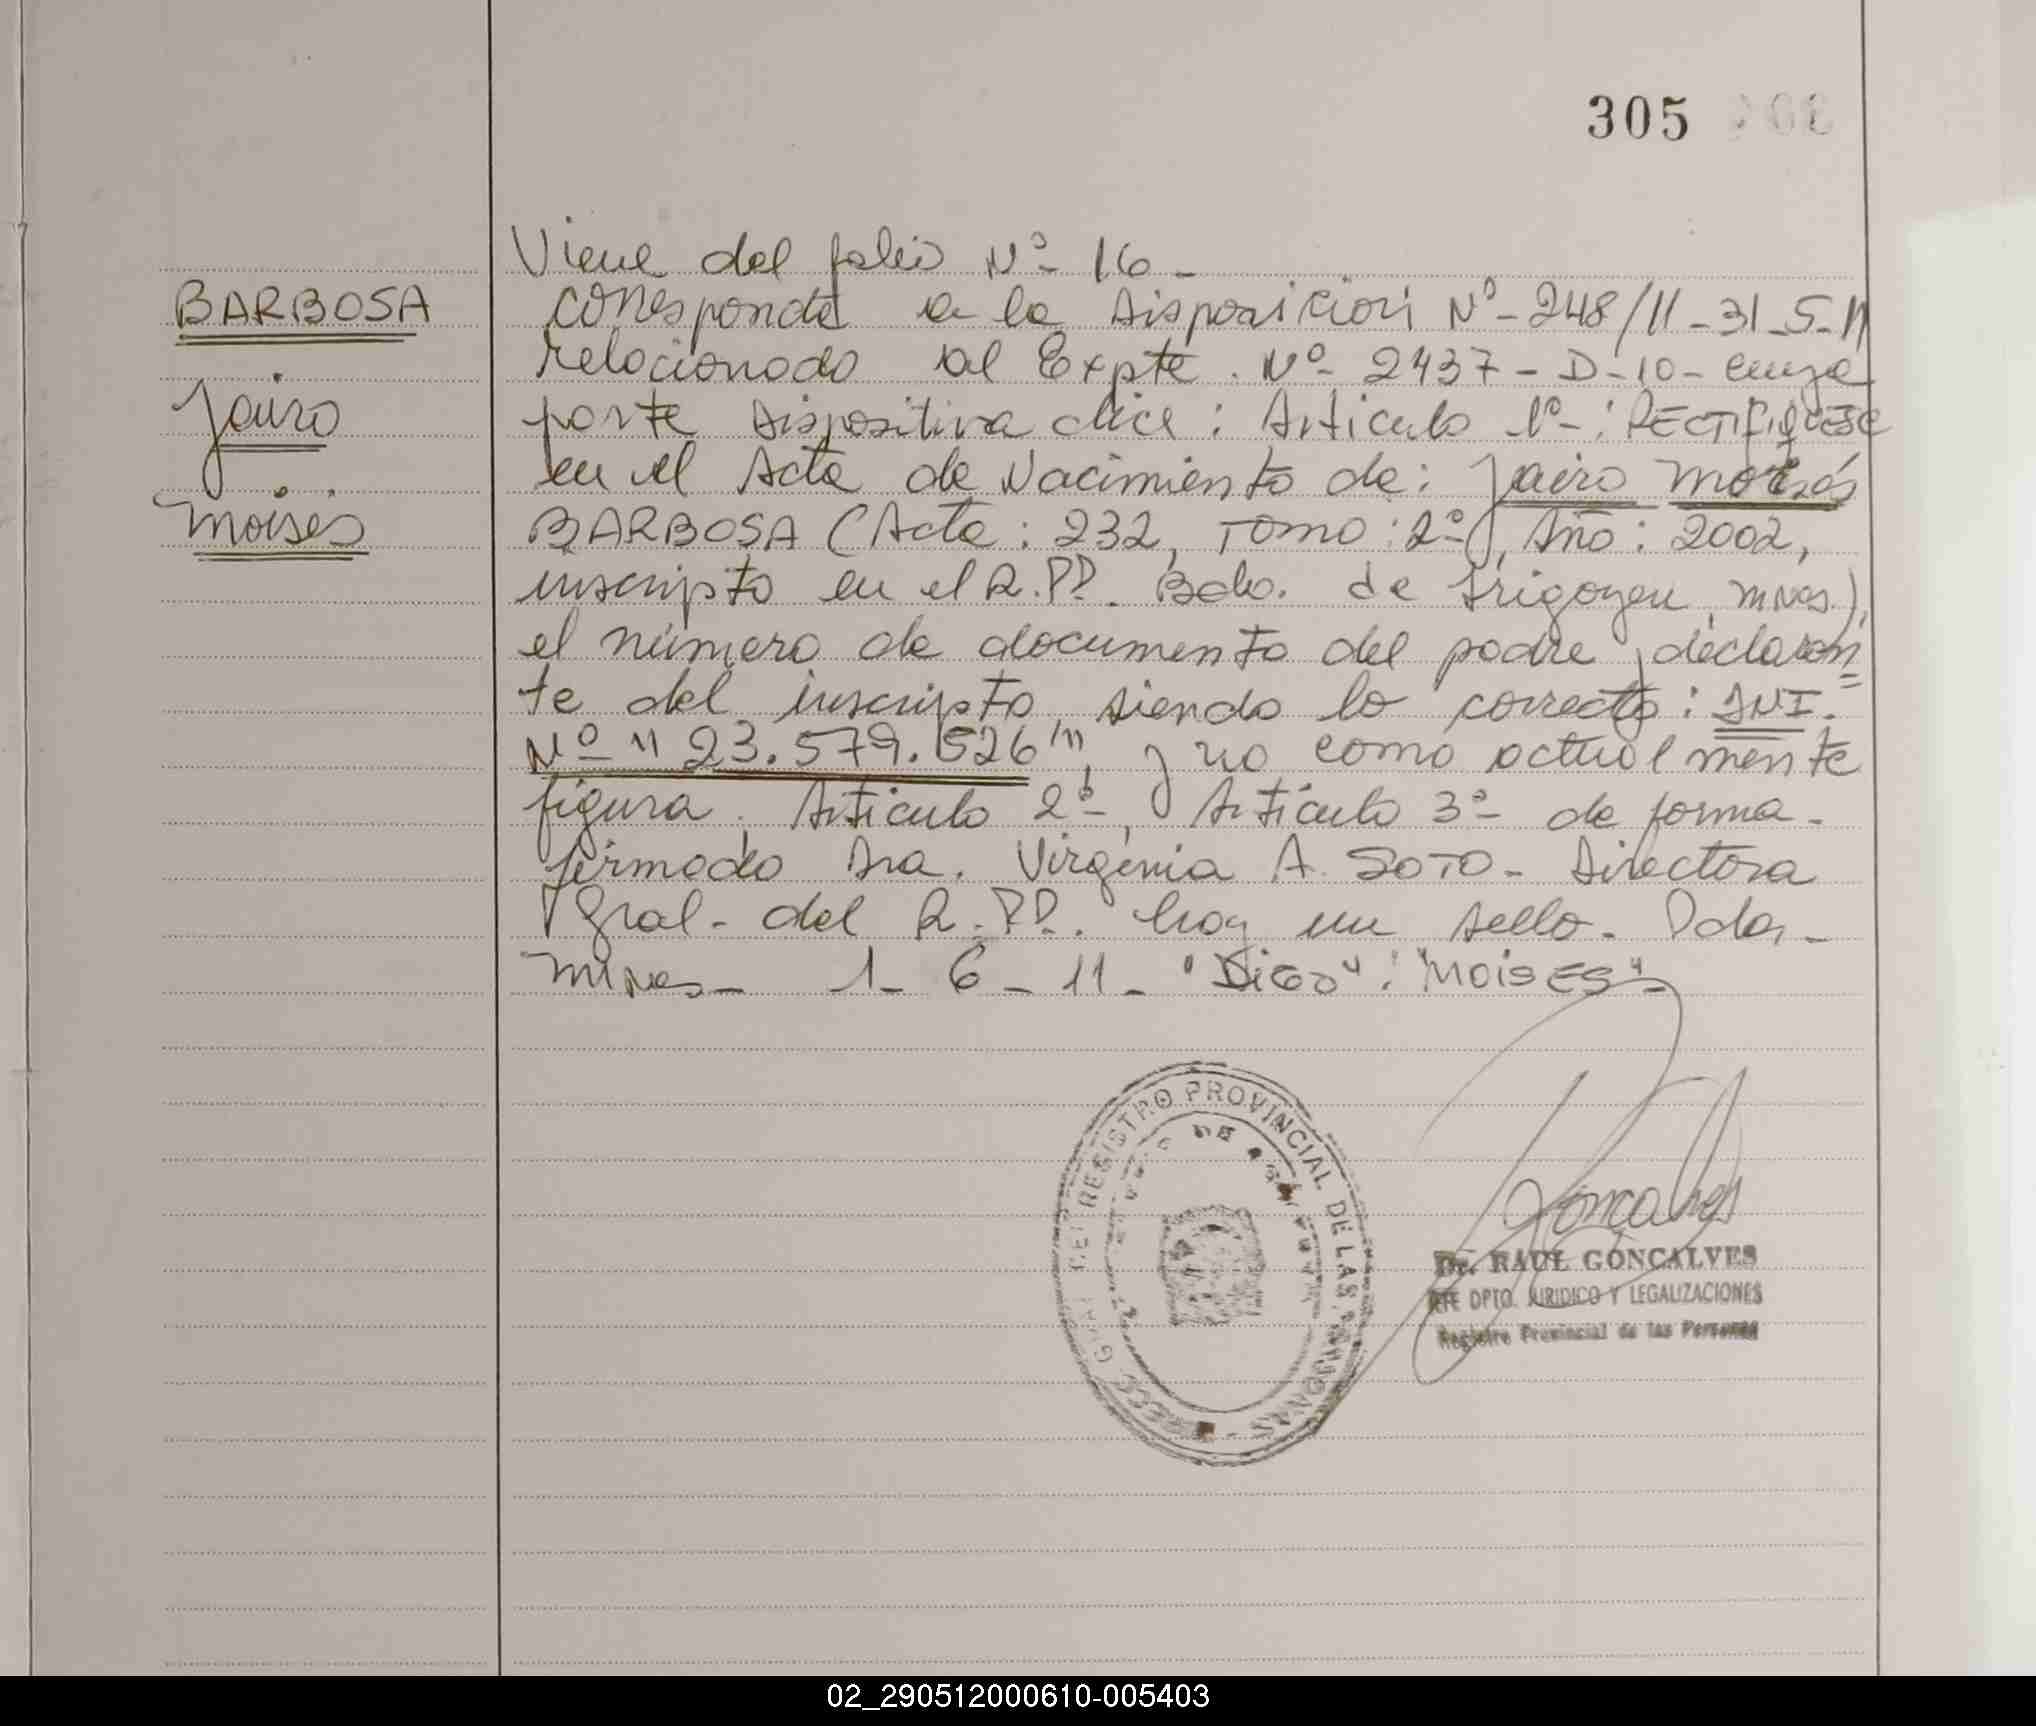 305
Viene del folio Nº 16 -
BARBOSA
Corresponde a la Disposicion Nº - 248/11 - 31-5-11
relacionado al Expte. Nº - 2437 - D - 10 - cuya
Jairo
parte dispositiva dice: Articulo 1º -: RECTIFIQUESE
en el Acta de Nacimiento de: Jairo Moisés
Moises
BARBOSA (Acta: 232, Tomo: 2º, Año: 2002,
inscripto en el R.PP. Bdo. de Irigoyen, Mnes.),
el número de documento del padre, declaran
te del inscripto siendo lo correcto: DNI.
Nº "23.579.526", y no como actualmente
figura. Articulo 2º, Articulo 3º de forma -
firmado Dra. Virginia A. SOTO - Directora
Gral - del R.PP. hay un sello. Pdas -
Mnes - 1 - 6 - 11 - "Digo": "MOISES" -
REGISTRO PROVINCIAL DE LAS PERSONAS
Goncalves
Dr. RAUL GONCALVES
JEFE DPTO. JURIDICO Y LEGALIZACIONES
Registro Provincial de las Personas
02_290512000610-005403